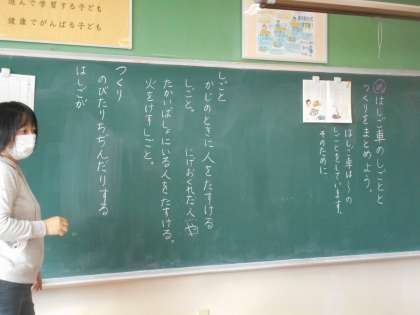 進んで学習する子ども
健康でがんばる子ども
め はしご車のしごとと
つくりをまとめよう。
はしご車は〜の
しごとをしています。
そのために、
しごと
かじのときに人をたすける
しごと。
にげおくれた人や
たかいばしょにいる人をたすける。
火をけすしごと。
つくり
のびたりちぢんだりする
はしごが